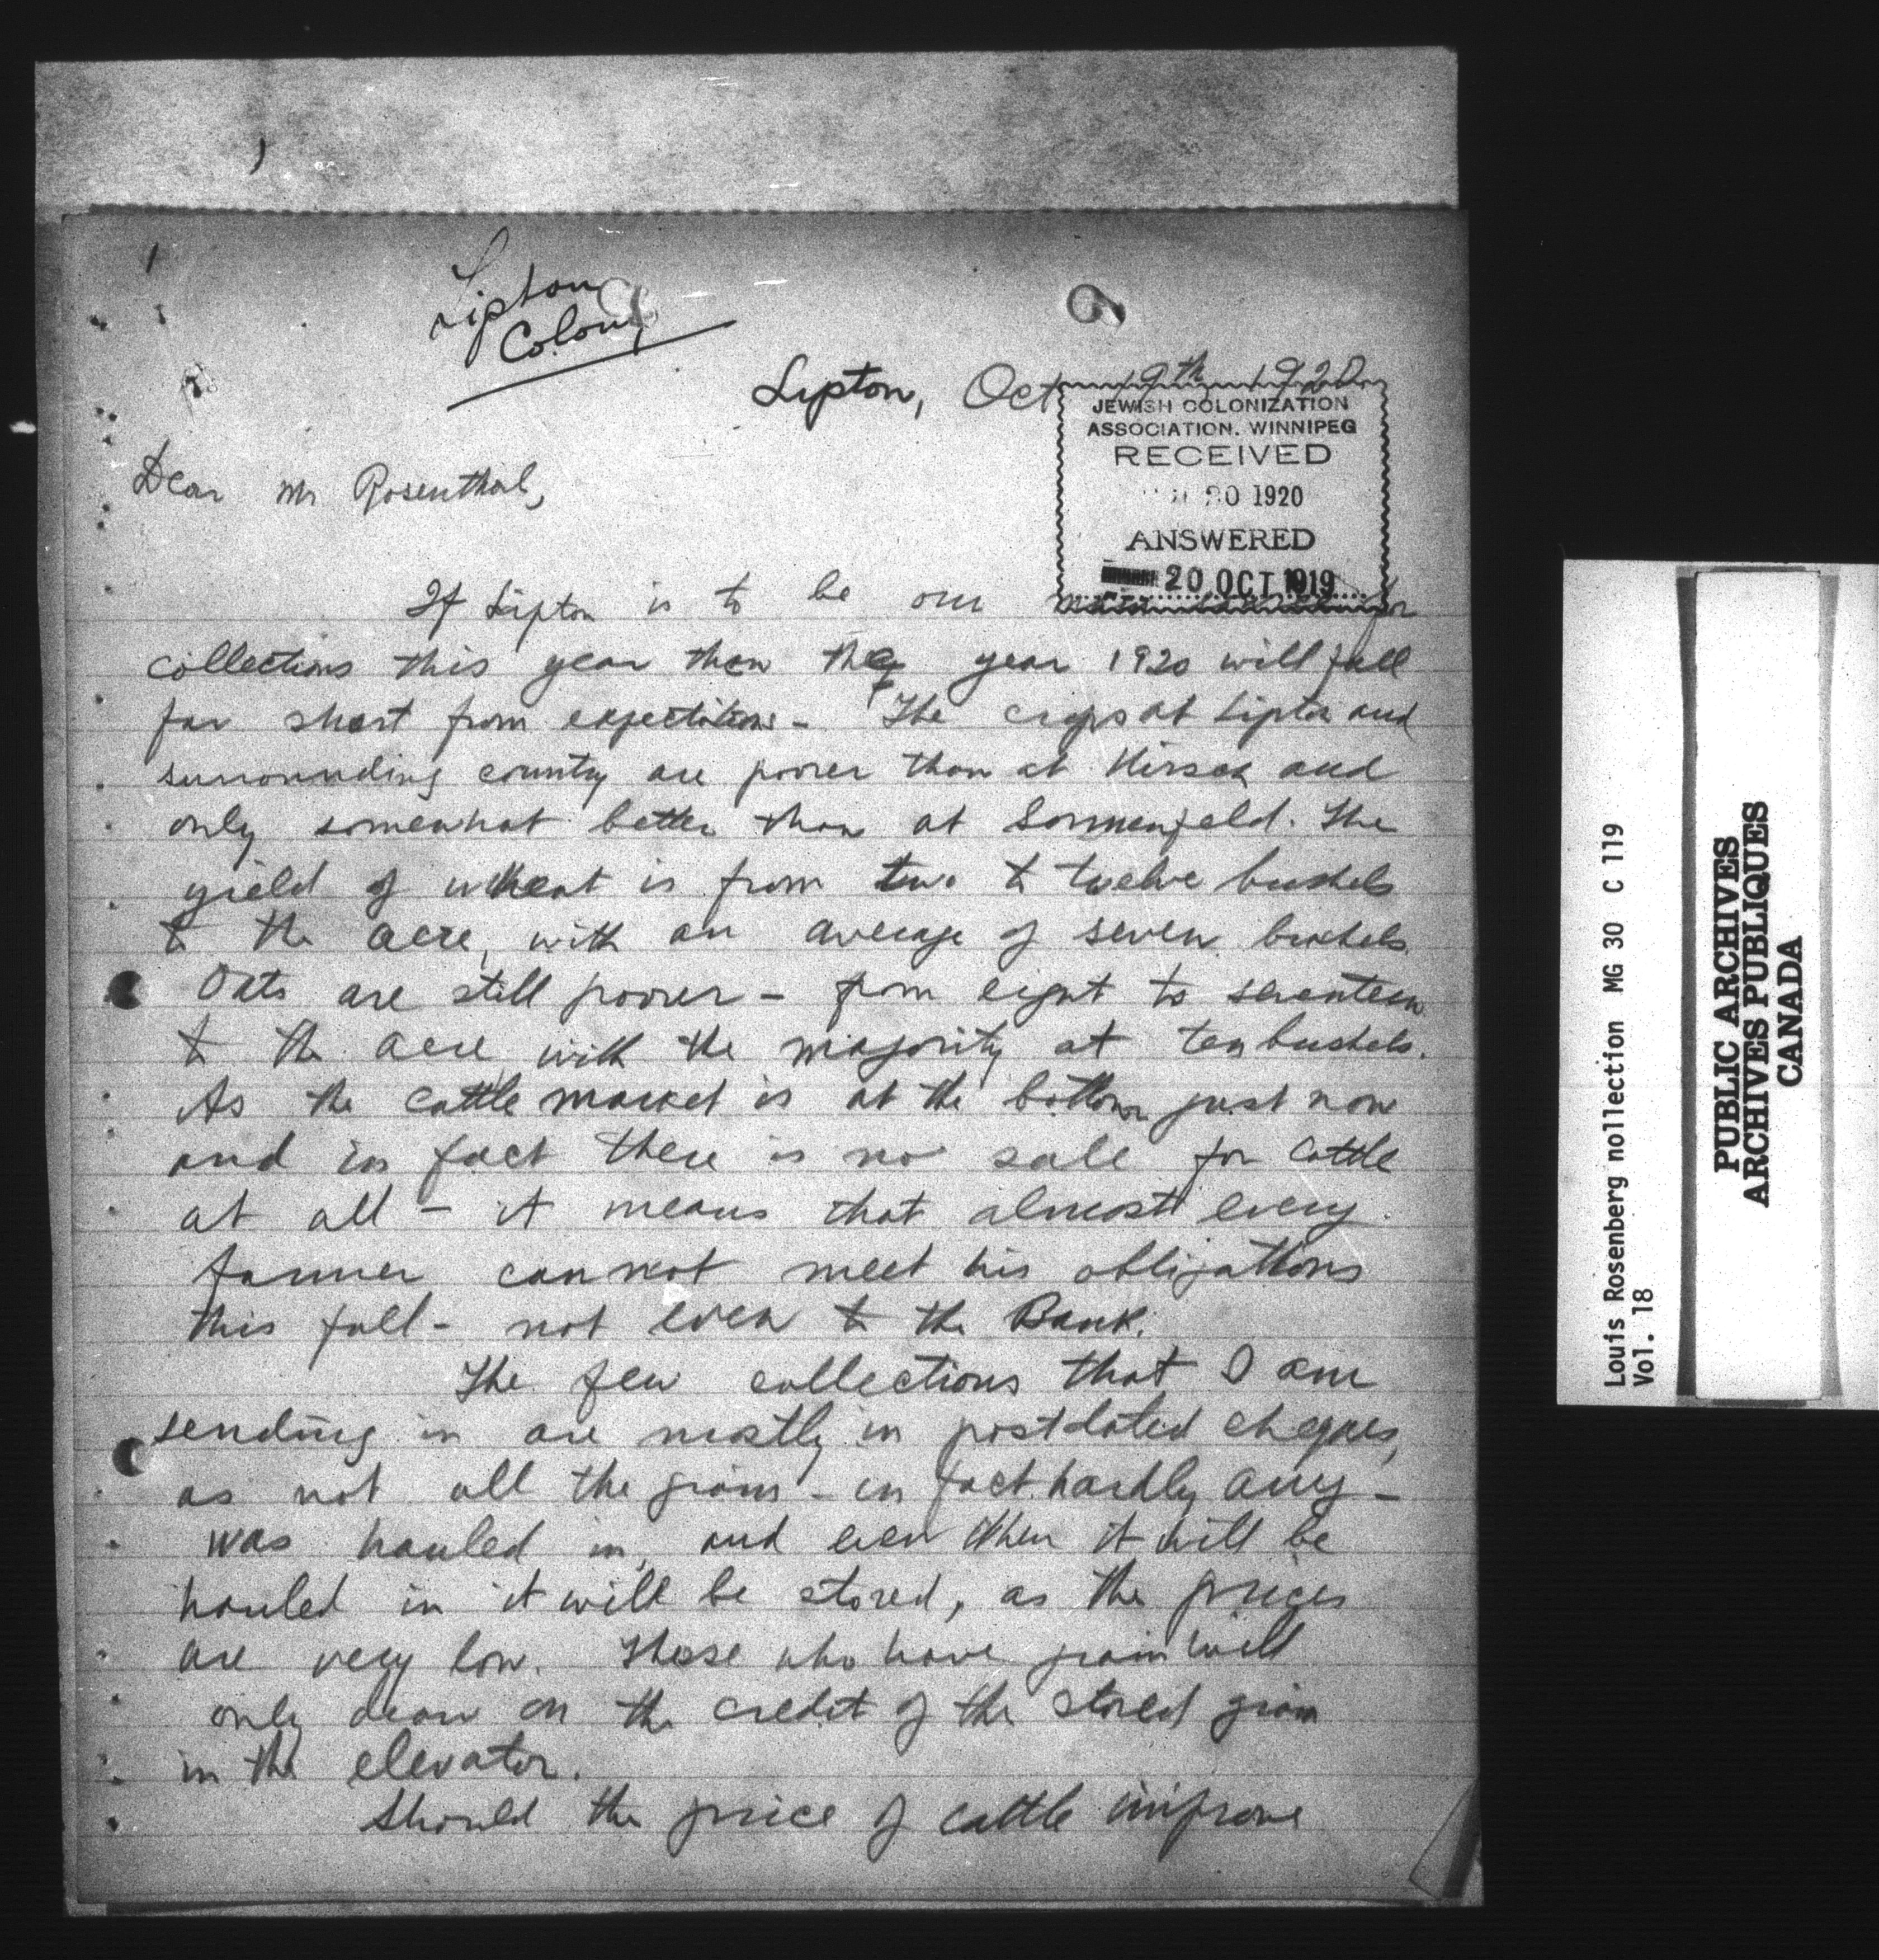 Lipton
Colony
Lipton, Oct 19th 1920
JEWISH COLONIZATION
ASSOCIATION. WINNIPEG
RECEIVED
20 1920
ANSWERED
20 OCT 1919
Dear Mr Rosenthal,
If Lipton is to be our
collections this year then the year 1920 will fall
far short from expectations - The crops at Lipton and
surrounding country are poorer than at Hirsch and
only somewhat better than at Sonnenfeld. The
yield of wheat is from two to twelve bushels
to the acre, with an average of seven bushels.
Oats are still poorer - from eight to seventeen
to the acre with the majority at ten bushels.
As the cattle market is at the bottom just now
and in fact there is no sale for cattle
at all - it means that almost every
farmer cannot meet his obligations
this fall - not even to the Bank.
The few collections that I am
sending in are mostly in postdated cheques,
as not all the grain - in fact hardly any -
was hauled in, and even when it will be
hauled in it will be stored, as the prices
are very low. Those who have grain will
only draw on the credit of the stored grain
in the elevator.
Should the price of cattle improve
Louis Rosenberg nollection MG 30 C 119
Vol. 18
PUBLIC ARCHIVES
ARCHIVES PUBLIQUES
CANADA